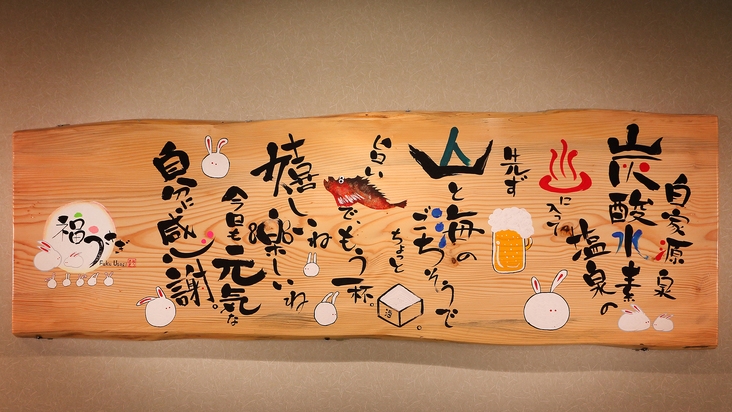 自家源泉
炭酸水素
塩泉の
に入って
先ず
山と海の
ごちそうで
ちょっと
酒
旨い
で、もう一杯。
嬉しいね
楽しいね
今日も元気な
自分に感謝。
福うさぎ
Fuku Usagi